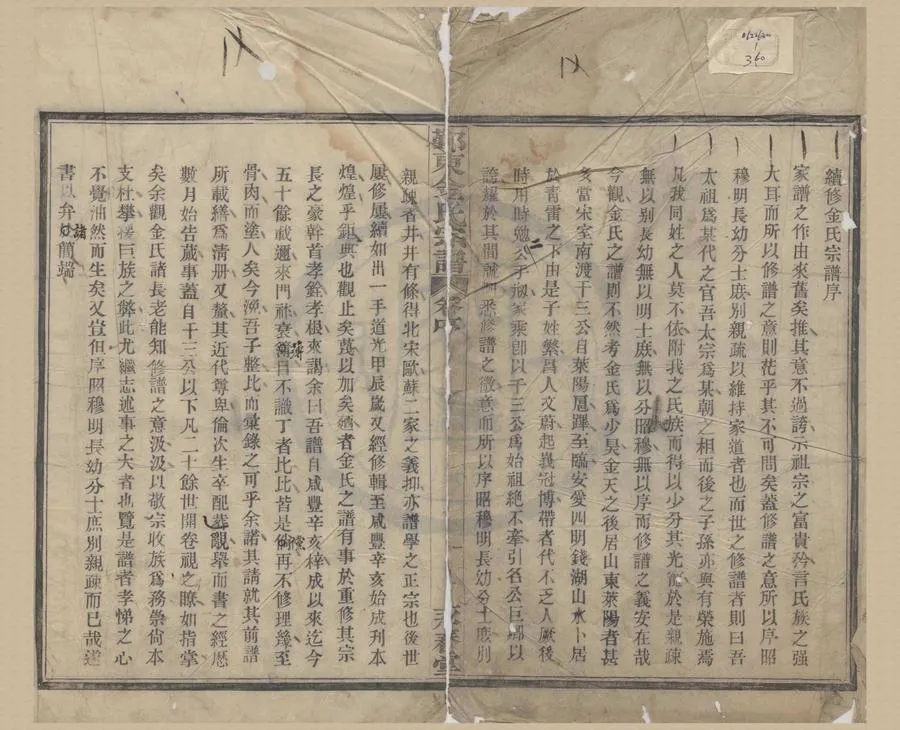 續修金氏宗譜序
家譜之作由來舊矣推其意不過誇示祖宗之富貴矜言氏族之强
大耳而所以修譜之意則茫乎其不可問矣蓋修譜之意所以序昭
穆明長幼分士庶別親疏以維持家道者也而世之修譜者則曰吾
太祖爲某代之官吾太宗爲某朝之相而後之子孫亦與有榮施焉
凡我同姓之人莫不依附我之氏族而得以少分其光寵於是親疎
無以别長幼無以明士庶無以分昭穆無以序而修譜之義安在哉
今觀金氏之譜則不然考金氏爲少昊金天之後居山東萊陽者甚
多當宋室南渡干三公自萊陽扈蹕至臨安愛四明錢湖山水卜居
於青雷之下由是子姓繁昌人文蔚起峩冠博帶者代不乏人厥後
時用時勉二公手刱家乘卽以干三公爲始祖絶不牽引名公巨卿以
誇耀於其間誠洞悉修譜之微意而所以序昭穆明長幼分士庶別
鄞東金氏宗譜 卷首
一
親疎者井井有條得北宋歐蘇二家之義抑亦譜學之正宗也後世
屢修屢續如出一手道光甲辰歲又經修輯至咸豐辛亥始成刋本
煌煌乎鉅典也觀止矣蔑以加矣嬪者金氏之譜有事於重修其宗
長之豪幹首孝銓孝根來謁余曰吾譜自咸豐辛亥梓成以來迄今
五十餘載邇來門祚衰薄目不識丁者比比皆是倘再不修理幾至
骨肉而塗人矣今浼吾子整比而彙錄之可乎余諾其請就其前譜
所載繕爲清册又釐其近代尊卑倫次生卒配葬覼舉而書之經厯
數月始告蕆事蓋自干三公以下凡二十餘世開卷視之瞭如指掌
矣余觀金氏諸長老能知修譜之意汲汲以敬宗收族爲務崇尙本
支杜攀援巨族之弊此尤繼志述事之大者也覽是譜者孝悌之心
不覺油然而生矣又豈但序昭穆明長幼分士庶別親疎而已哉遂
書以弁諸簡端
0/22/20
1
360